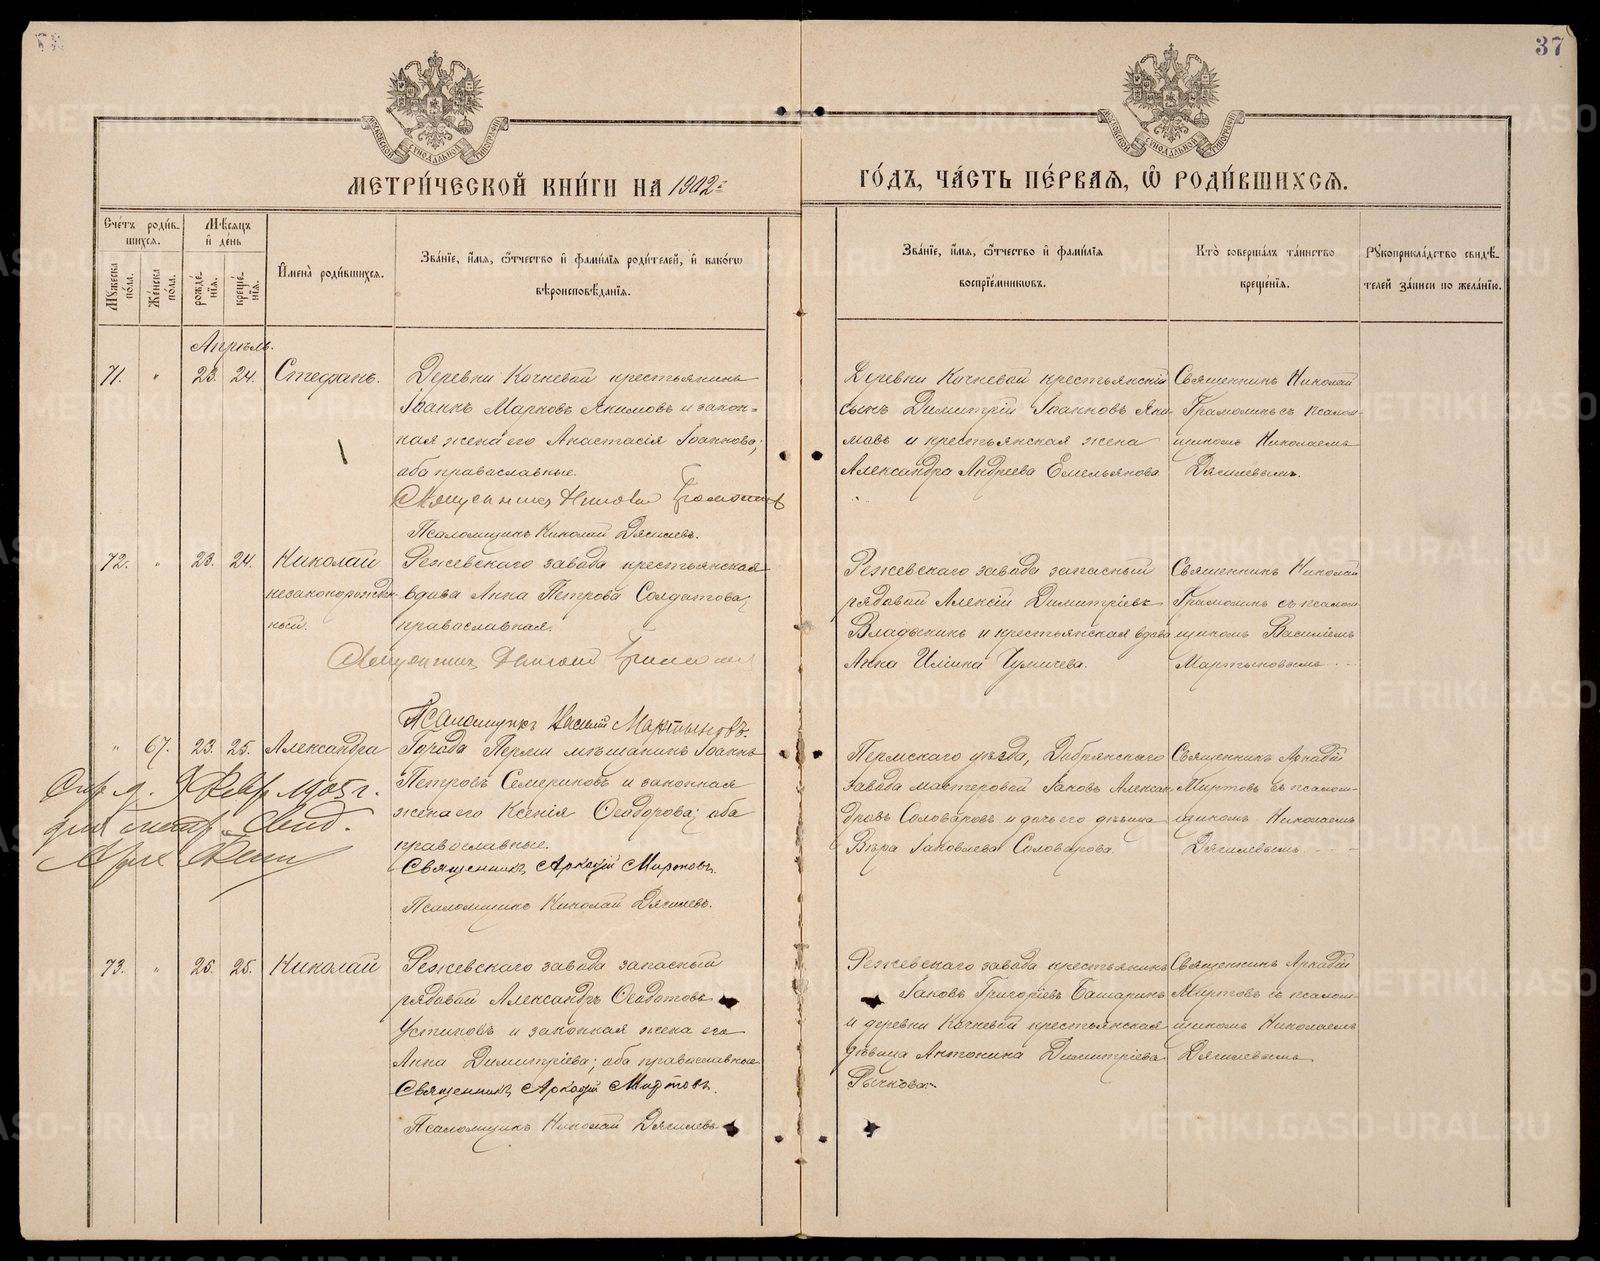 37
МЕТРИ́ЧЕСКОЙ КНИ́ГИ НА 1902 г.
ГО́ДЪ, ЧА́СТЬ ПЕ́РВАЯ, Ѽ РОДИ́ВШИХСѦ.
Сче́тъ роди́вшихсѧ.
Мѣ́сяцъ и҆ день
Мꙋ́жеска по́ла.
Же́нска по́ла.
рожде́нїѧ.
креще́нїѧ.
И҆мена̀ роди́вшихсѧ.
Зва́нїе, и҆́мѧ, ѻ҆́тчество и҆ фами́лїѧ роди́телей, и҆ како́гѡ вѣроисповѣ́данїѧ.
Зва́нїе, и҆́мѧ, ѻ҆́тчество и҆ фами́лїѧ воспрїе́мникѡвъ.
Кто̀ соверша́лъ та́инство креще́нїѧ.
Рꙋкоприкла́дство свидѣ́телей за́писи по жела́нїю.
Апрѣль.
71. " 23. 24. Стефанъ.
Деревни Кочневой крестьянинъ
Іоаннъ Марковъ Якимовъ и закон-
ная жена его Анастасія Іоаннова;
оба православные.
Священникъ Николай Грамолинъ
Псаломщикъ Николай Дягилевъ.
Деревни Кочневой крестьянскій
сынъ Димитрій Іоанновъ Яки-
мовъ и крестьянская жена
Александра Андреева Емельянова.
Священникъ Николай
Грамолинъ съ псалом-
щикомъ Николаемъ
Дягилевымъ.
72. " 23. 24. Николай
незаконорожден-
ный.
Режевскаго завода крестьянская
вдова Анна Петрова Солдатова,
православная.
Священникъ Николай Грамолин
Псаломщикъ Василій Мартыновъ.
Режевскаго завода запасный
рядовой Алексій Димитріевъ
Владыкинъ и крестьянская вдова
Анна Иліина Чушчева.
Священникъ Николай
Грамолинъ съ псалом
щикомъ Василіемъ
Мартыновымъ
" 67. 23. 25. Александра
Города Перми мѣщанинъ Іоаннъ
Петровъ Семериковъ и законная
жена его Ксенія Ѳеодорова; оба
православные.
Священникъ Аркадій Миртовъ.
Псаломщикъ Николай Дягилевъ.
Пермскаго уѣзда, Добрянскаго
завода мастеровой Іаковъ Алексан-
дровъ Соловаровъ и дочь его дѣвица
Вѣра Іаковлева Соловарова.
Священникъ Аркадій
Миртовъ съ псалом-
щикомъ Николаемъ
Дягилевымъ
1905 г.
73. " 25. 25. Николай
Режевскаго завода запасный
рядовой Александръ Ѳеодотовъ
Устиновъ и законная жена его
Анна Димитріева; оба православные
Священникъ Аркадій Миртовъ.
Псаломщикъ Николай Дягилевъ
Режевскаго завода крестьянинъ
Іаковъ Григоріевъ Башаринъ
и деревни Кочневой крестьянская
дѣвица Антонина Димитріева
Рычкова.
Священникъ Аркадій
Миртовъ съ псалом-
щикомъ Николаемъ
Дягилевымъ
METRIKI.GASO-URAL.RU